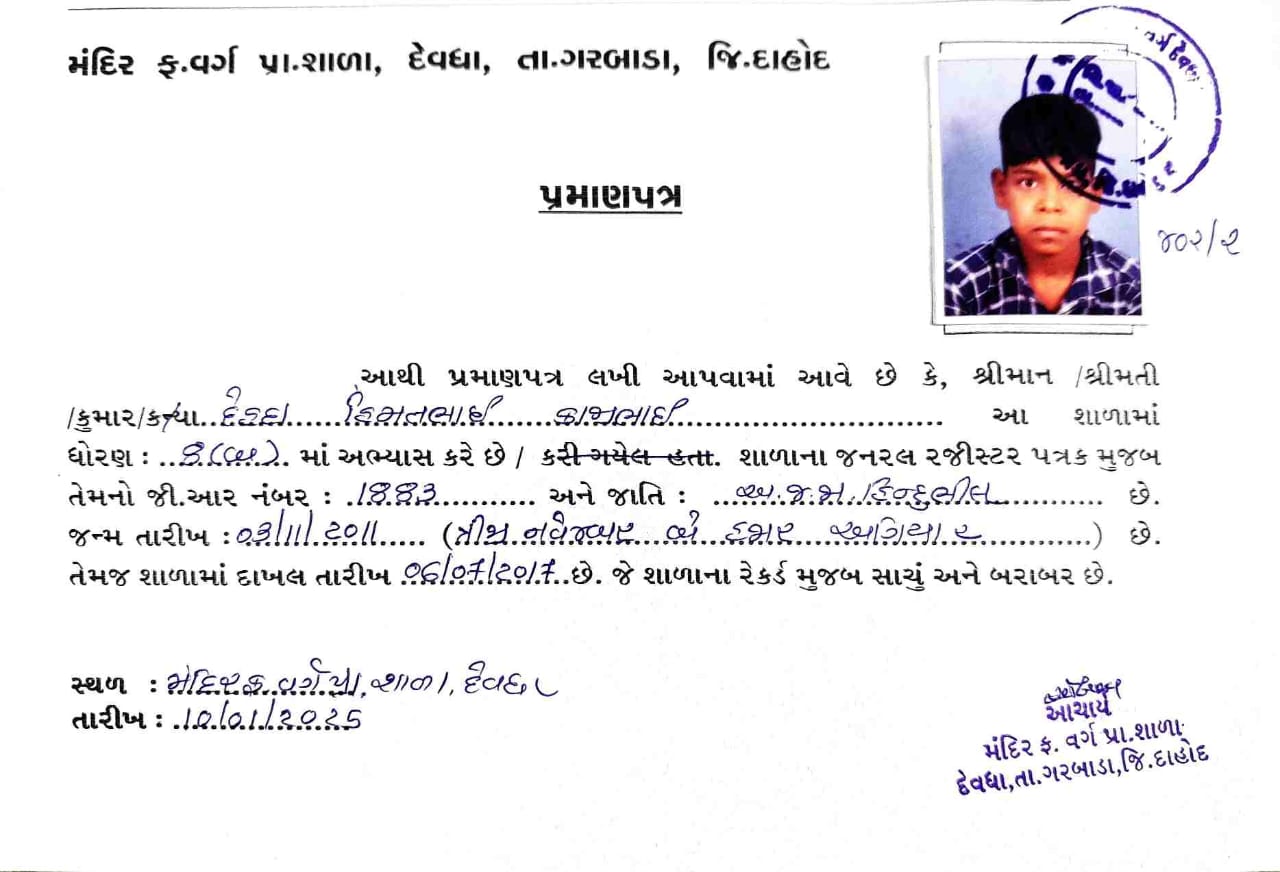 મંદિર ફ.વર્ગ પ્રા.શાળા, દેવધા, તા.ગરબાડા, જિ.દાહોદ
વર્ગ દેવધા
પ્રમાણપત્ર
૪૦૨/૨
આથી પ્રમાણપત્ર લખી આપવામાં આવે છે કે, શ્રીમાન /શ્રીમતી
/કુમાર/કન્યા..દેહદા......હિમતભાઈ.... કાજુભાઈ................................ આ શાળામાં
ધોરણ : ..૬(બ).. માં અભ્યાસ કરે છે / કરી ગયેલ હતા. શાળાના જનરલ રજીસ્ટર પત્રક મુજબ
તેમનો જી.આર નંબર : .1883.......... અને જાતિ : ...અ.જ.જા.હિન્દુભીલ............ છે.
જન્મ તારીખ :03/11/2011...... (ત્રીજી નવેમ્બર બે હજાર અગિયાર............) છે.
તેમજ શાળામાં દાખલ તારીખ 06/07/2017..છે. જે શાળાના રેકર્ડ મુજબ સાચું અને બરાબર છે.
સ્થળ : મંદિર ફ. વર્ગ પ્રા. શાળા, દેવધા
તારીખ : .10/01/2025
આચાર્ય
મંદિર ફ. વર્ગ પ્રા.શાળા
દેવધા,તા.ગરબાડા,જિ.દાહોદ